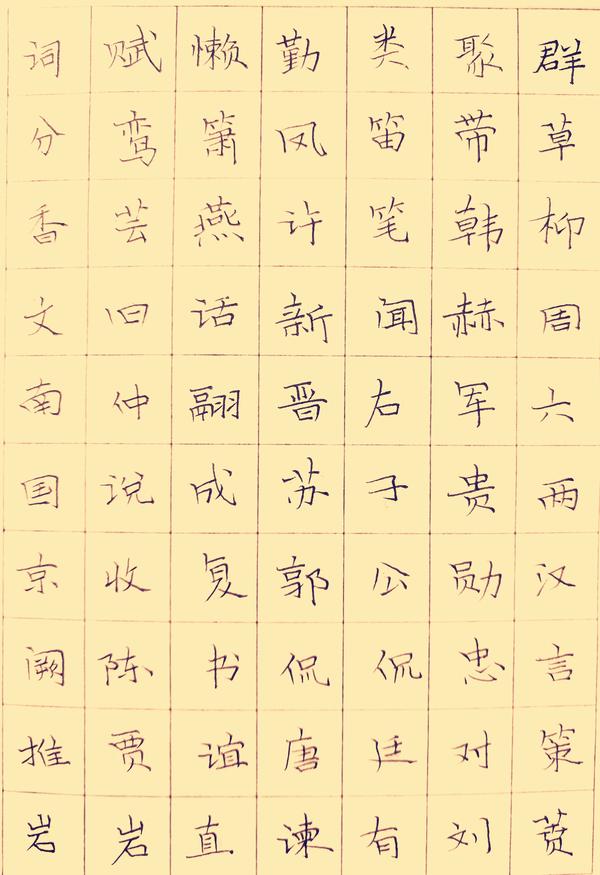 词赋懒勤类聚群
分鸾箫凤笛带草
香芸燕许笔韩柳
文旧话新闻赫周
南仲翮晋右军六
国说成苏子贵两
京收复郭公勋汉
阙陈书侃侃忠言
推贾谊唐廷对策
岩岩直谏有刘